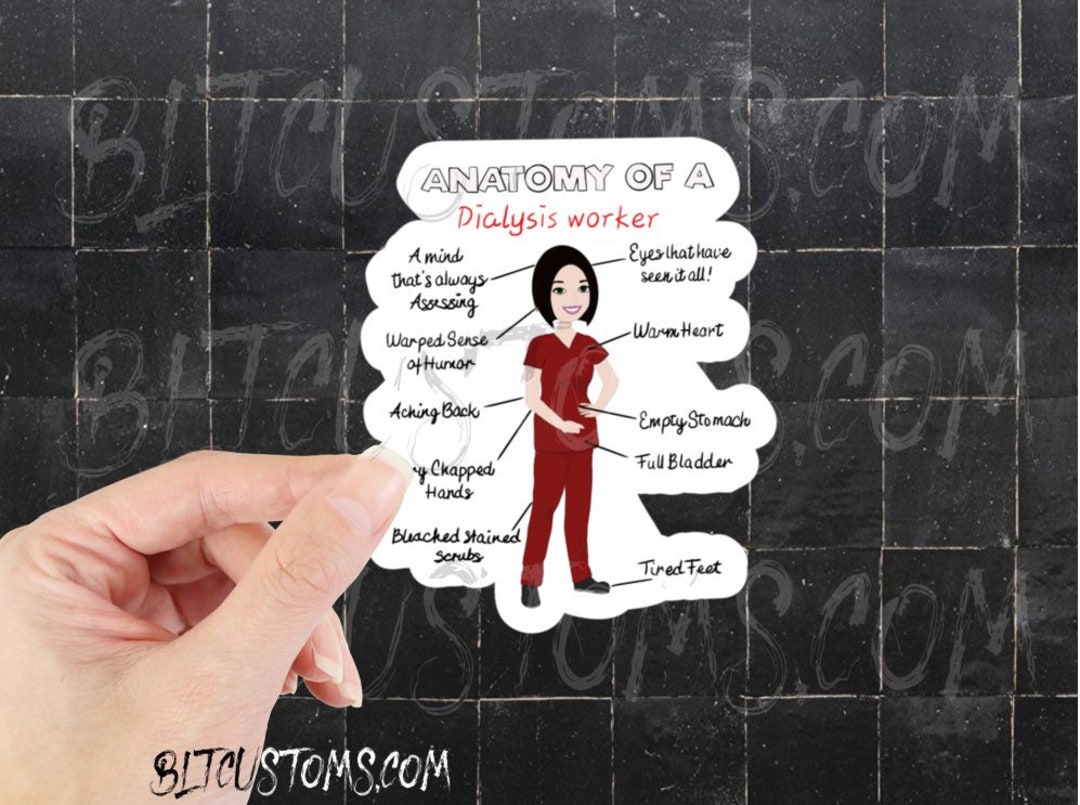 BLTCUSTOMS.COM
ANATOMY OF A
Dialysis worker
A mind
that's always
Assessing
Eyes that have
seen it all!
Warped Sense
of Humor
Warm Heart
BLTCUSTOMS.COM
Aching Back
Empty Stomach
Full Bladder
Chapped
Hands
Bleached stained
scrubs
Tired Feet
BLTCUSTOMS.COM
BLTCUSTOMS.COM